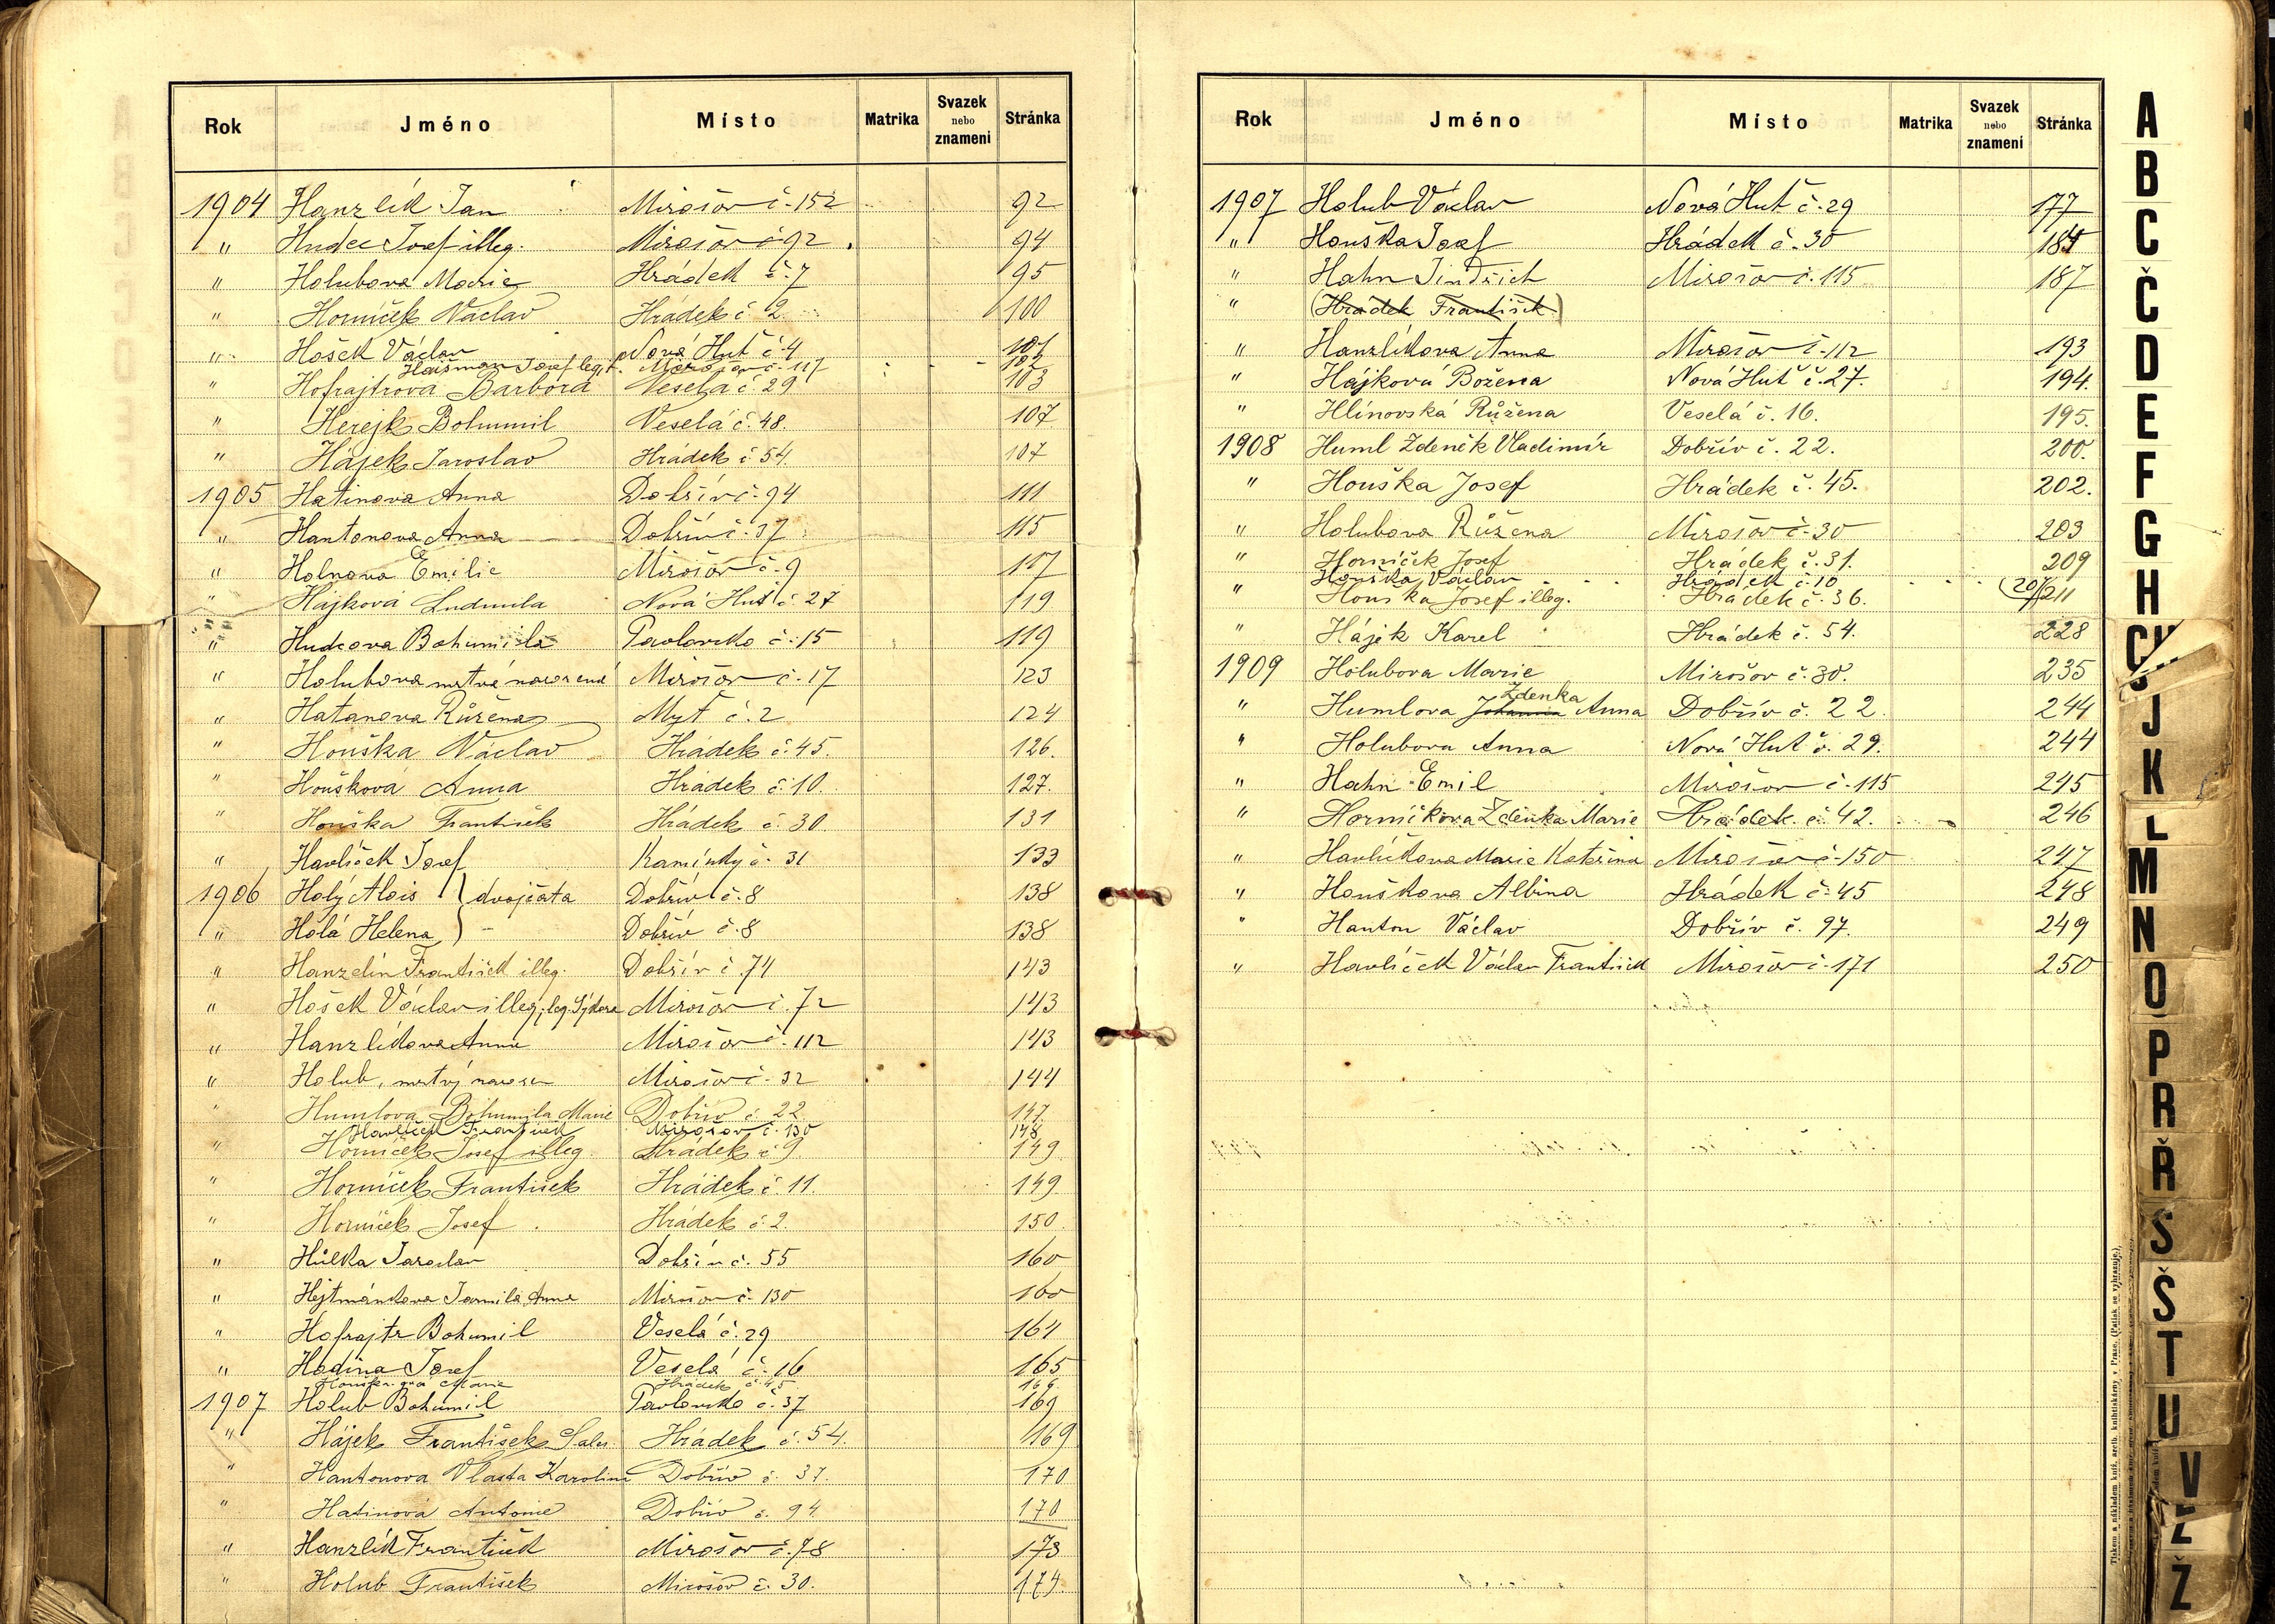 Rok Jméno Místo Matrika Svazek nebo znamení Stránka
1904 Hanzlík Jan Mirošov č. 152 92
" Hudec Josef illeg. Mirošov č. 92 94
" Holubova Marie Hrádek č. 7 95
" Horníček Václav Hrádek č. 2 100
" Hošek Václav Nová Huť č. 4 101
Haišman Josef leg. Mirošov č. 117 102
" Hofrajtrová Barbora Veselá č. 29 103
" Herejk Bohumil Veselá č. 48. 107
" Hájek Jaroslav Hrádek č. 54. 107
1905 Hatinova Anna Dobřív č. 94 111
" Hantonova Anna Dobřív č. 37 115
" Holnova Emilie Mirošov č. 9 117
" Hájková Ludmila Nová Huť č. 27 119
" Hudcova Bohumila Pavlovsko č. 15 119
" Holubova mrtvě narozená Mirošov č. 17 123
" Hatanova Růžena Myť č. 2 124
" Houška Václav Hrádek č. 45. 126.
" Houšková Anna Hrádek č. 10. 127.
" Houška František Hrádek č. 30. 131
" Havlíček Josef Kamínky č. 31 133
1906 Holý Alois } dvojčata Dobřív č. 8 138
" Holá Helena } - Dobřív č. 8 138
" Hanzelín František illeg. Dobřív č. 74 143
" Hošek Václav illeg., leg. Sýkora Mirošov č. 72 143
" Hanzlíkova Anna Mirošov č. 112 143
" Holub, mrtvý narozen Mirošov č. 32 144
" Humlova Bohumila Marie Dobřív č. 22. 147.
Havlíček František Mirošov č. 130 148
" Horníček Josef illeg. Hrádek č. 9. 149.
" Horníček František Hrádek č. 11. 149.
" Horníček Josef. Hrádek č. 2. 150.
" Hůlka Jaroslav Dobřív č. 55 160
" Hejtmánkova Jarmila Anna Mirošov č. 130 160
" Hofrajtr Bohumil Veselá č. 29 164
" Hodina Josef Veselá č. 16 165
Marie Hrádek č. 45 166.
1907 Holub Bohumil Pavlovsko č. 37 169
" Hájek František Sales. Hrádek č. 54. 169
" Hantonova Vlasta Karolina Dobřív č. 37. 170
" Hatinová Antonie Dobřív č. 94. 170
" Hanzlík František Mirošov č. 78 173
" Holub František Mirošov č. 30. 174.
Rok Jméno Místo Matrika Svazek nebo znamení Stránka
1907 Holub Václav Nová Huť č. 29 177
" Houška Josef Hrádek č. 30 184
" Hahn Jindřich Mirošov č. 115 187
" (Hrádek František)
" Hanzlíkova Anna Mirošov č. 112 193
" Hájková Božena Nová Huť č. 27. 194.
" Hlinovská Růžena Veselá č. 16. 195.
1908 Huml Zdeněk Vladimír Dobřív č. 22. 200.
" Houška Josef Hrádek č. 45. 202.
" Holubova Růžena Mirošov č. 30 203
" Horníček Josef Hrádek č. 31. 209
Houška Václav Hrádek č. 10
" Houška Josef illeg. Hrádek č. 36. 211
" Hájek Karel Hrádek č. 54. 228
1909 Holubova Marie Mirošov č. 30. 235
Zdenka
" Humlova Johanna Anna Dobřív č. 22. 244
" Holubova Anna Nová Huť č. 29. 244
" Hahn Emil Mirošov č. 115 245
" Horníčkova Zdenka Marie Hrádek č. 42. 246
" Havlíčkova Marie Kateřina Mirošov č. 150 247
" Houškova Albina Hrádek č. 45 248
" Hanton Václav Dobřív č. 97. 249
" Havlíček Václav František Mirošov č. 171 250
A
B
C
Č
D
E
F
G
H
J
K
L
M
N
O
P
R
Ř
S
Š
T
U
V
Z
Ž